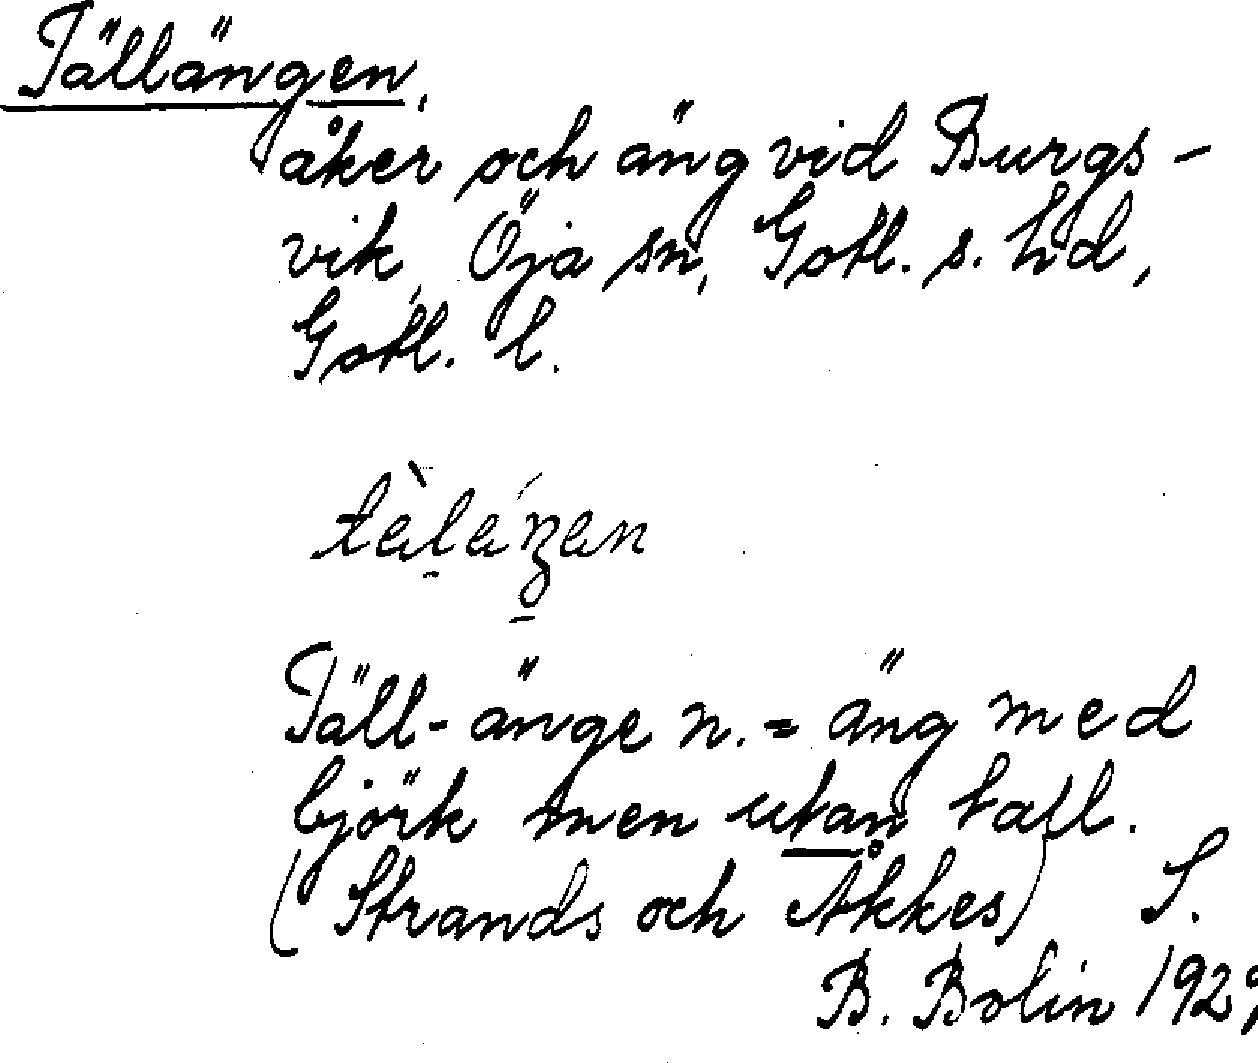 Tällängen,
åker och äng vid Burgs-
vik, Öja sn, Gotl. s. hd,
Gotl. l.
Täll-änge n. = äng med
björk men utan tall.
(Strands och Åkkes) S.
B. Bolin